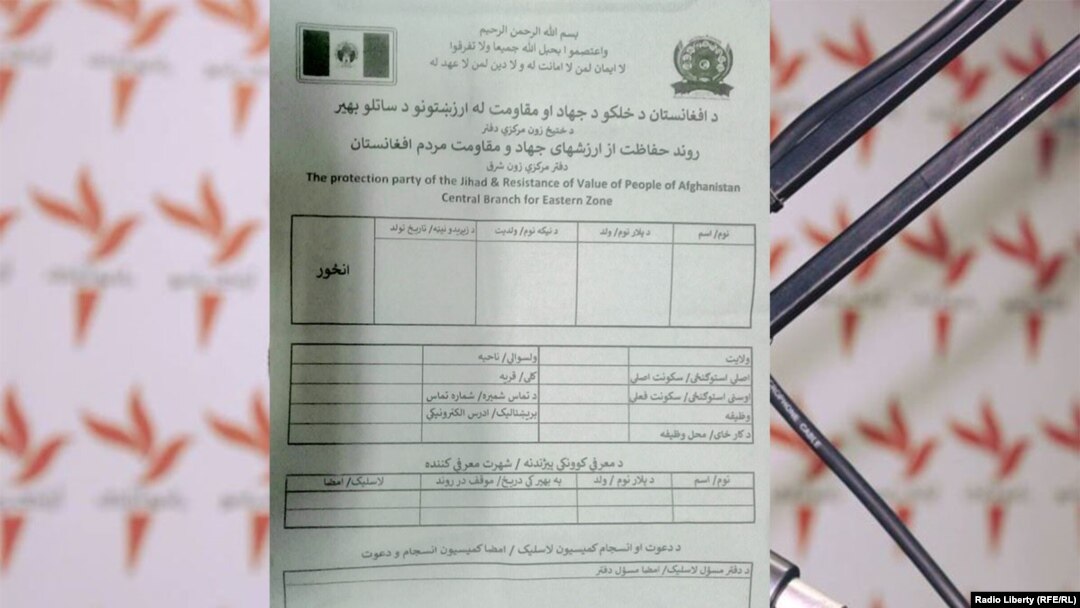 بسم الله الرحمن الرحیم
واعتصموا بحبل الله جمیعا ولا تفرقوا
لا ایمان لمن لا امانت له و لا دین لمن لا عهد له
د افغانستان د خلکو د جهاد او مقاومت له ارزښتونو د ساتلو بهیر
د ختیځ زون مرکزي دفتر
روند حفاظت از ارزشهای جهاد و مقاومت مردم افغانستان
دفتر مرکزي زون شرق
The protection party of the Jihad & Resistance of Value of People of Afghanistan
Central Branch for Eastern Zone
نوم/ اسم د پلار نوم/ ولد د نیکه نوم/ ولدیت د زیږیدو نیټه/ تاریخ تولد
انځور
ولایت ولسوالي/ ناحیه
اصلي استوګنځی/ سکونت اصلي کلی/ قریه
اوسنی استوګنځی/ سکونت فعلي د تماس شمیره/ شماره تماس
وظیفه بریښنالیک/ ادرس الکترونیکي
د کار ځای/ محل وظیفه
د معرفي کوونکي پیژندنه / شهرت معرفي کننده
نوم/ اسم د پلار نوم / ولد په بهیر کې دریځ/ موقف در روند لاسلیک/ امضا
د دعوت او انسجام کمیسیون لاسلیک / امضا کمیسیون انسجام و دعوت
د دفتر مسؤل لاسلیک/ امضا مسؤل دفتر
MICROPHONE CABLE
Radio Liberty (RFE/RL)